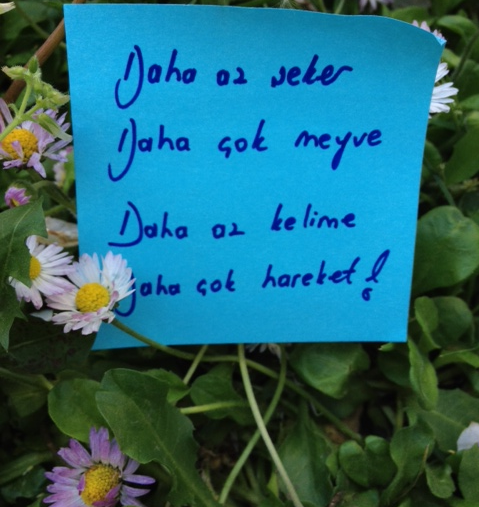 Daha az şeker
Daha çok meyve
Daha az kelime
Daha çok hareket!